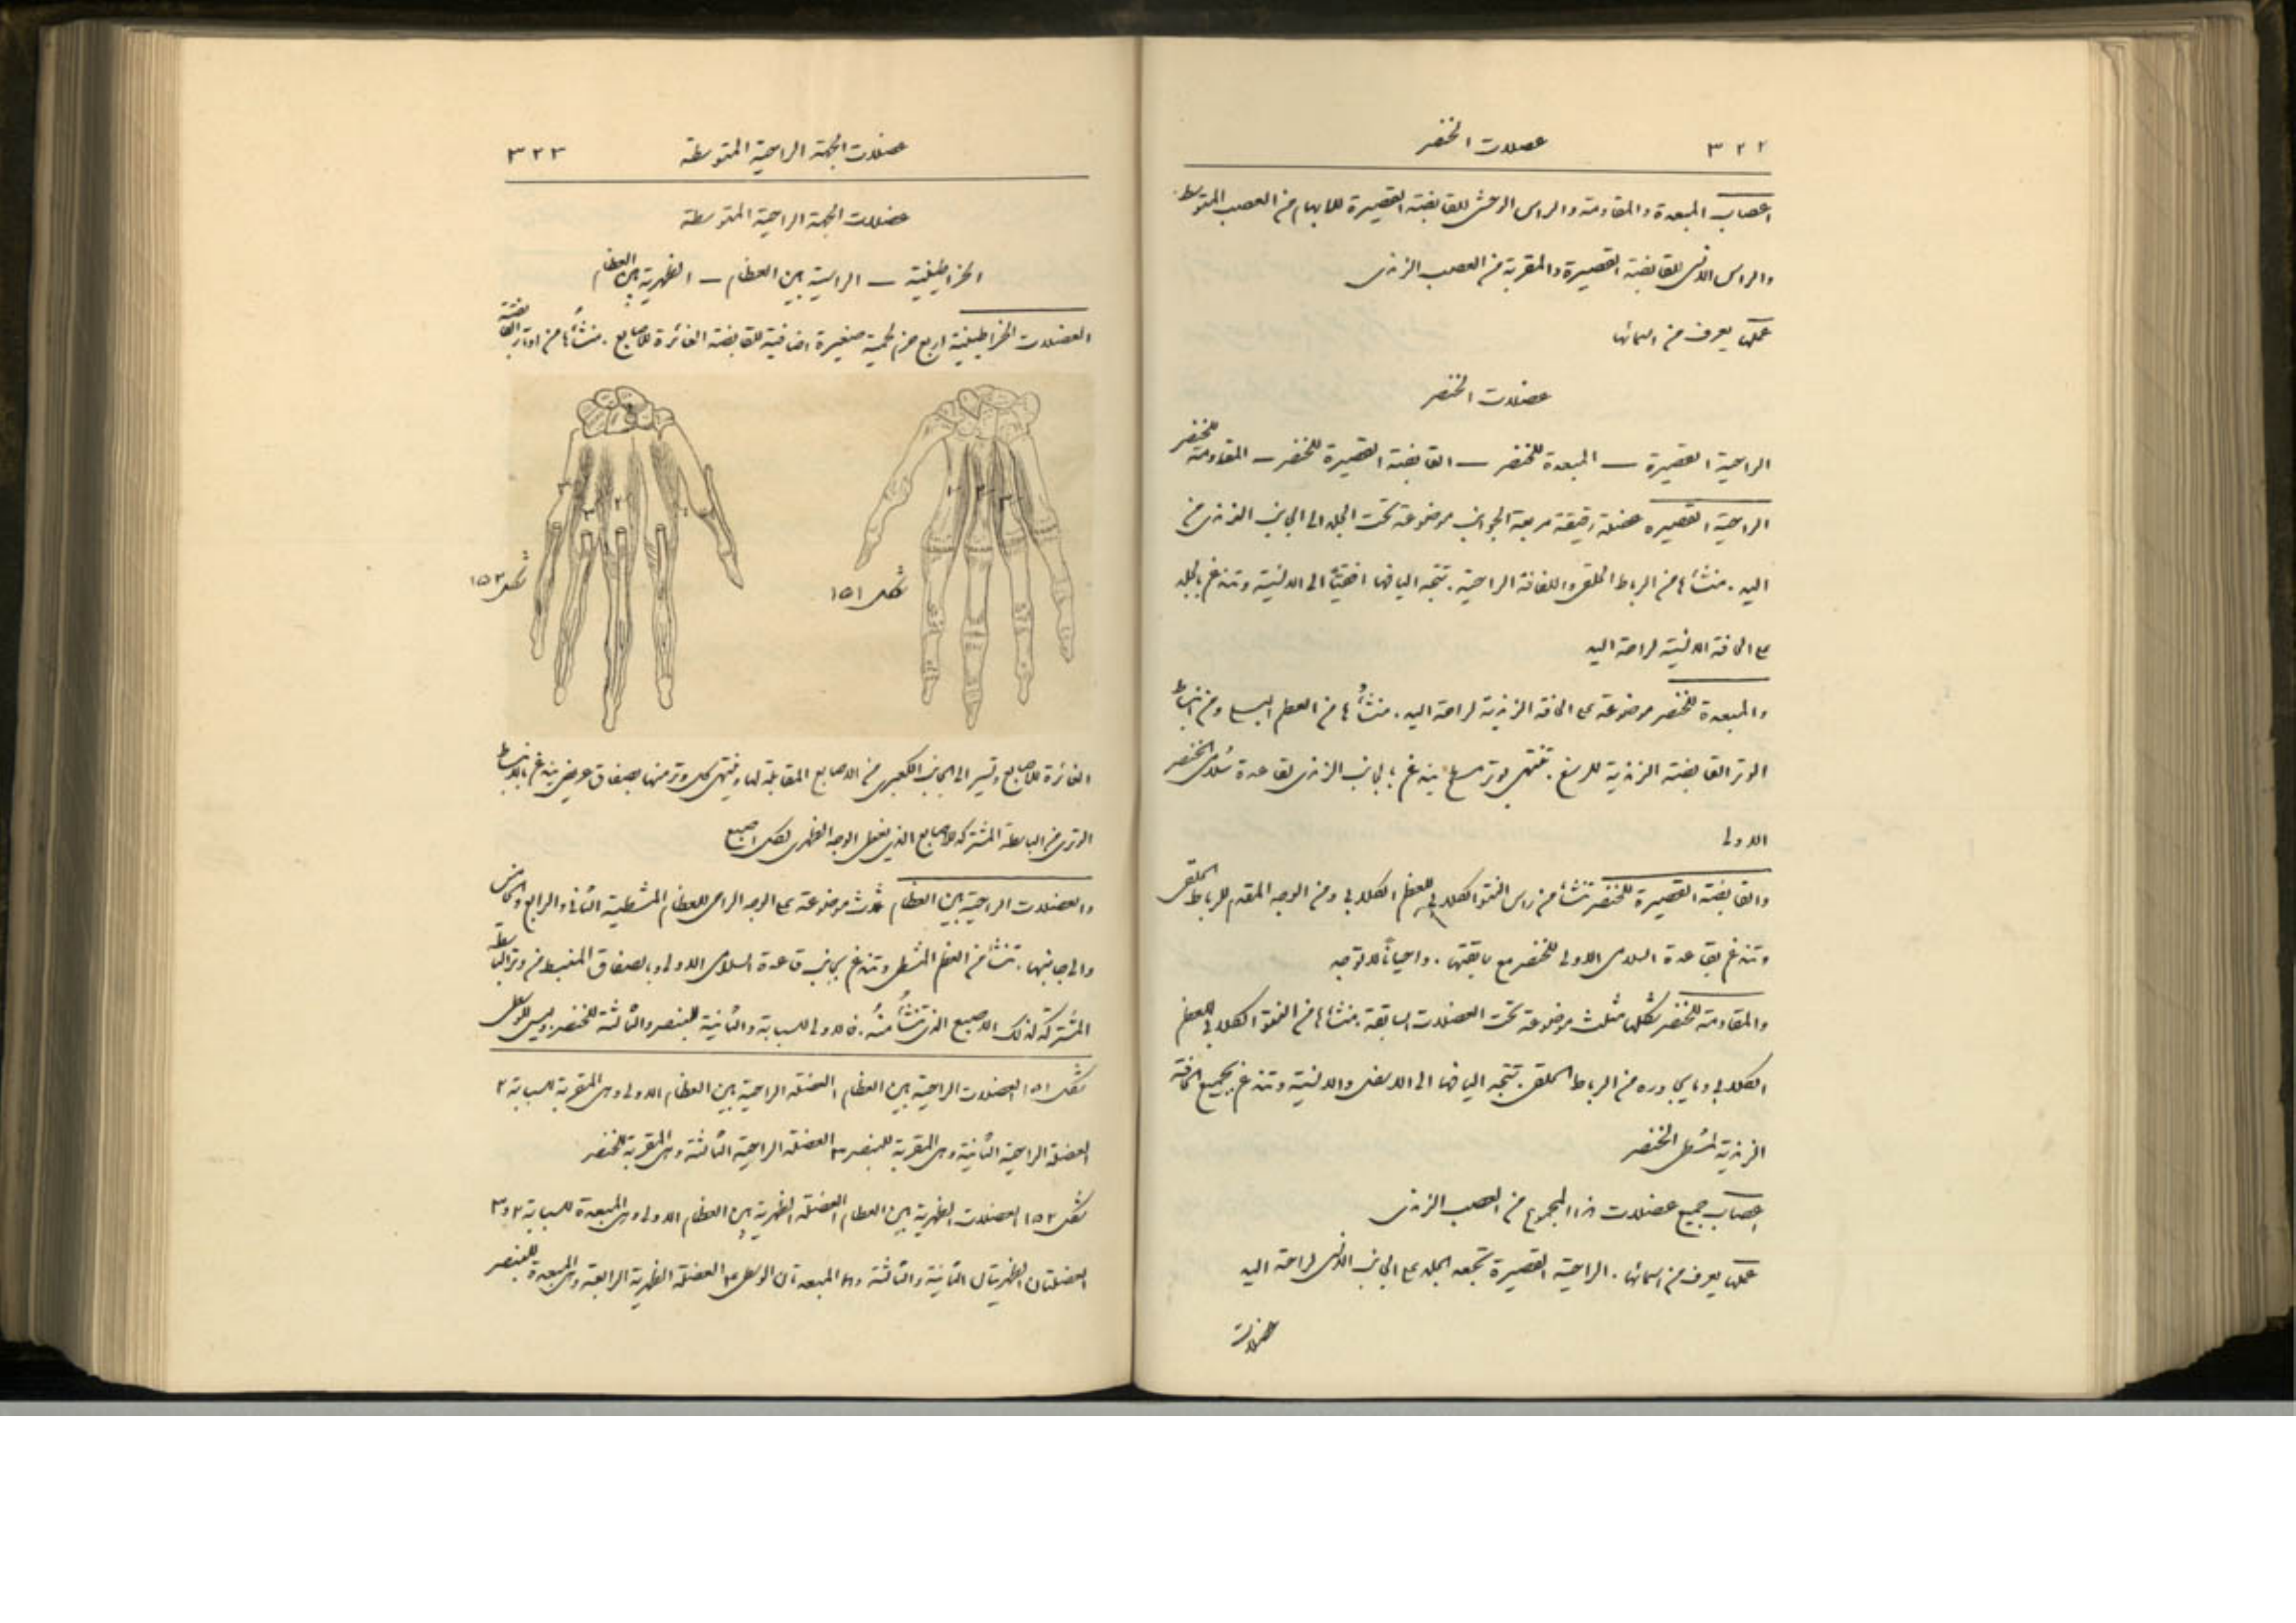 ٣٢٢
عضلات الخنصر
اعصاب المبعدة والمقاومة والراس الوحشى للقابضة القصيرة للابهام من العصب المتوسط.
والراس الانسى للقابضة القصيرة والمقربة من العصب الزندى
عملها يعرف من اسمائها
عضلات الخنصر
الراحية القصيرة — المبعدة للخنصر — القابضة القصيرة للخنصر — المقاومة للخنصر
الراحية القصيره عضلة رقيقة مربعة الجوانب موضوعة تحت الجلد الى الجانب الزندى من
اليد. منشأها من الرباط الحلقى واللفافة الراحية. تتجه اليافها افقيًا الى الانسية وتندغم بالجلد
على الحافة الانسية لراحة اليد
والمبعدة للخنصر موضوعة على الحافة الزندية لراحة اليد. منشأُها من العظم البسلى ومن انبساط
الوتر القابضة الزندية للرسغ. تنتهى بوتر مسطح يندغم بالجانب الزندى لقاعدة سُلامى الخنصر
الاولى
والقابضة القصيرة للخنصر تنشأ من راس النتو الكلابى للعظم الكلابى ومن الوجه المقدم للرباط الحلقى
وتندغم بقاعدة السلامى الاولى للخنصر مع سابقتها. واحيانًا لا توجد
والمقاومة للخنصر شكلها مثلث موضوعة تحت العضلات السابقة. منشأها من النتو الكلابى للعظم
الكلابى وما يجاوره من الرباط الحلقى. تتجه اليافها الى الاسفل والانسية وتندغم بجميع الحافة
الزندية لمشط الخنصر
اعصاب جميع عضلات هذا المجموع من العصب الزندى
عملها يعرف من اسمائها. الراحية القصيرة تجعد الجلد على الجانب الانسى لراحة اليد
عضلات
عضلات الجهة الراحية المتوسطة
٣٢٣
عضلات الجهة الراحية المتوسطة
الخراطينية — الراحية بين العظام — الظهرية بين العظام
العضلات الخراطينية اربع حزم لحمية صغيرة اضافية للقابضة الغائرة للاصابع. منشأُها من اوتار القابضة
شكل ١٥١
شكل ١٥٢
الغائرة للاصابع وتسير الى الجانب الكعبرى من الاصابع المقابلة لها وينتهى كل وتر منها بصفاق عريض يندغم بالانبساط
الوترى من الباسطة المشتركة للاصابع الذى يغطى الوجه الظهرى لكل اصبع
والعضلات الراحية بين العظام ثلاث موضوعة على الوجه الراحى للعظام المشطية الثانى والرابع والخامس
والى جانبها. تنشأ من العظم المشطى وتندغم بجانب قاعدة السلامى الاولى وبالصفاق المنبسط من وتر الباسطة
المشتركة لذلك الاصبع الذى تنشأُ منهُ. فالاولى للسبابة والثانية للبنصر والثالثة للخنصر وليس للوسطى
شكل ١٥١ العضلات الراحية بين العظام ١ العضلة الراحية بين العظام الاولى وهى المقربة للسبابة ٢
العضلة الراحية الثانية وهى المقربة للبنصر ٣ العضلة الراحية الثالثة وهى المقربة للخنصر
شكل ١٥٢ العضلات الظهرية بين العظام ١ العضلة الظهرية بين العظام الاولى وهى المبعدة للسبابة ٢ و٣
العضلتان الظهريتان الثانية والثالثة وهما المبعدتان الوسطى ٤ العضلة الظهرية الرابعة وهى المبعدة للبنصر